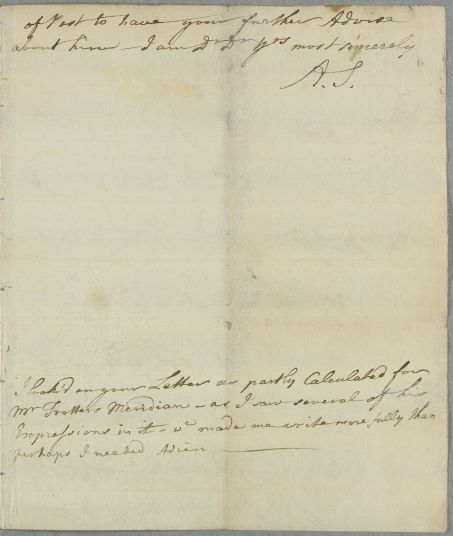 of Post to have your further Advise
about him - I am Dr Dr yrs most sincerely
A. S.
I look'd on your Letter as partly Calculated for
Mr Trotters Meridian - as I saw several of his
Expressions in it - wc made me write more fully than
perhaps I needed Adieu